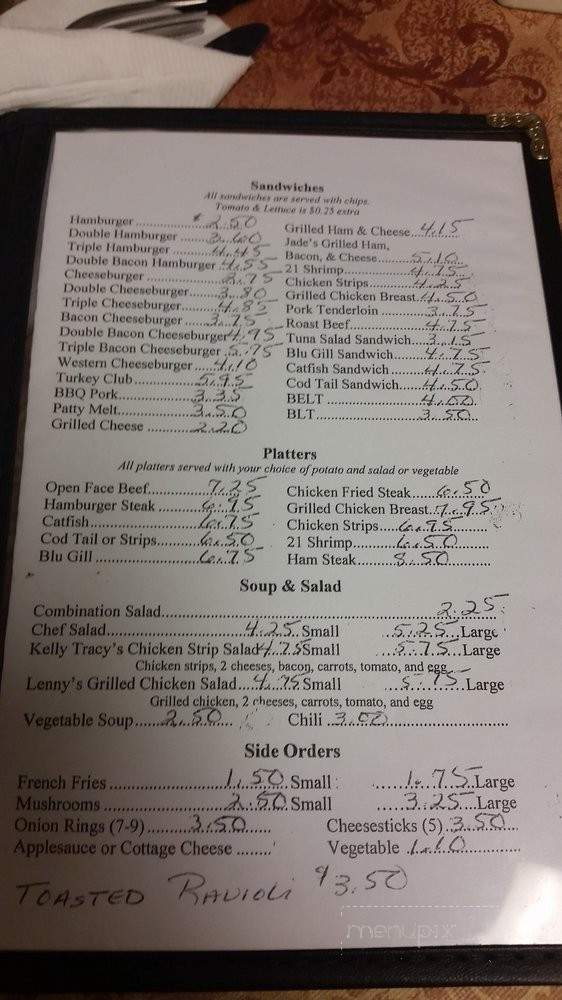 Sandwiches
All sandwiches are served with chips.
Tomato & Lettuce is $0.25 extra
Hamburger $ 2.50
Double Hamburger 3.60
Triple Hamburger 4.45
Double Bacon Hamburger 4.55
Cheeseburger 2.75
Double Cheeseburger 3.80
Triple Cheeseburger 4.85
Bacon Cheeseburger 3.75
Double Bacon Cheeseburger 4.95
Triple Bacon Cheeseburger 5.75
Western Cheeseburger 4.10
Turkey Club 5.95
BBQ Pork 3.35
Patty Melt 3.50
Grilled Cheese 2.20
Grilled Ham & Cheese 4.15
Jade's Grilled Ham,
Bacon, & Cheese 5.10
21 Shrimp 4.75
Chicken Strips 4.25
Grilled Chicken Breast 4.50
Pork Tenderloin 3.75
Roast Beef 4.75
Tuna Salad Sandwich 3.15
Blu Gill Sandwich 4.75
Catfish Sandwich 4.75
Cod Tail Sandwich 4.50
BELT 4.00
BLT 3.50
Platters
All platters served with your choice of potato and salad or vegetable
Open Face Beef 7.25
Hamburger Steak 6.95
Catfish 6.75
Cod Tail or Strips 6.50
Blu Gill 6.75
Chicken Fried Steak 6.50
Grilled Chicken Breast 7.95
Chicken Strips 6.75
21 Shrimp 6.50
Ham Steak 8.50
Soup & Salad
Combination Salad 2.25
Chef Salad 4.25 Small 5.25 Large
Kelly Tracy's Chicken Strip Salad 4.75 Small 5.75 Large
Chicken strips, 2 cheeses, bacon, carrots, tomato, and egg
Lenny's Grilled Chicken Salad 4.75 Small 5.75 Large
Grilled chicken, 2 cheeses, carrots, tomato, and egg
Vegetable Soup 2.50 Chili 3.00
Side Orders
French Fries 1.50 Small 1.75 Large
Mushrooms 2.50 Small 3.25 Large
Onion Rings (7-9) 3.50 Cheesesticks (5) 3.50
Applesauce or Cottage Cheese Vegetable 1.10
TOASTED RAVIOLI $3.50
menupix